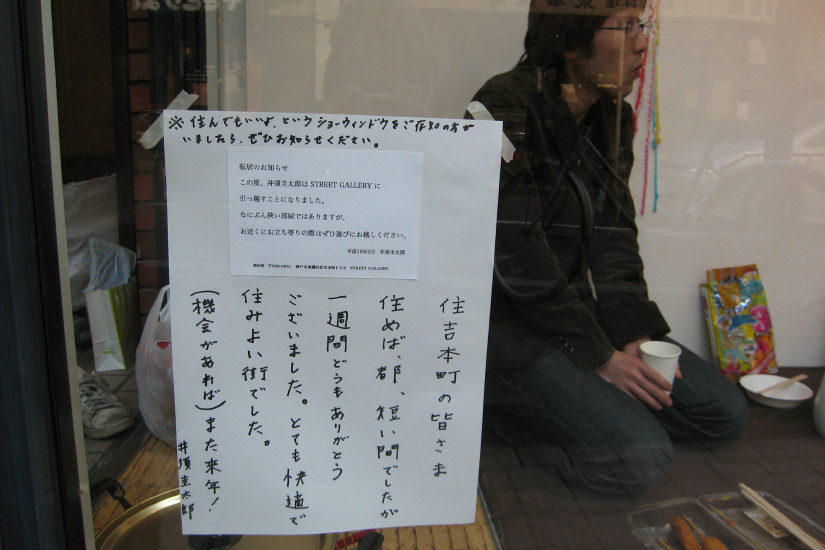 ※住んでもいいよ、というショーウィンドウをご存知の方が
いましたら、ぜひお知らせください。
転居のお知らせ
この度、井須圭太郎は STREET GALLERY に
引っ越すことになりました。
なにぶん狭い部屋ではありますが、
お近くにお立ち寄りの際はぜひ遊びにお越しください。
平成19年2月 井須圭太郎
STREET GALLERY
住吉本町の皆さま
住めば、都、短い間でしたが
一週間どうもありがとう
ございました。とても快適で
住みよい街でした。
(機会があれば)また来年!
井須圭太郎